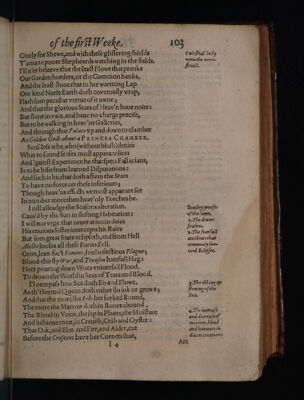 of the first Weeke.
103
Onely for Shewe, and with these glistering shields
T'amaze poore Shepheards watching in the fields.
I'll ne'er beleeve that the least Flowr that pranks
Our Garden borders, or the Common banks,
And the least stone that in her warming Lap
Our kind Nurse Earth doth covetously wrap,
Hath som peculiar vertue of it owne;
And that the glorious Stars of Heav'n haue none:
But shine in vain, and haue no charge precise,
But to be walking in heav'ns Galleries,
And through that Palace vp and down to clamber
As Golden Guls about a PRINCES CHAMBER.
Sens-less is he, who (without blush) denies
What to sound senses most apparant lies:
And 'gainst Experience he that spets Fallacians,
Is to be hist from learned Disputations:
And such is he, that doth affirm the Stars
To have no force on these inferiours;
Though heav'ns effects we most apparant see
In number more then heav'nly Torches be.
I nill alledge the Seasons alteration,
Caus'd by the Sun in shifting Habitation:
I will not vrge, that never at noon daies
His enuious Sister intercepts his Raies
But som great State eclipseth, and from Hell
Alecto looses all these Furies fell,
Grim, lean-fac't Famine, foul infectious Plague,
Blood-thirsty War, and Treason hatefull Hag:
Heer pouring down Woes vniuersall Flood,
To drown the World in Seas of Tears and Blood.
I'l overpass how Sea doth Eb and Flowe,
As th'Horned Queen doth either shrink or growe;
And that the more she Fils her forked Round,
The more the Marrow doth in Bones abound,
The Blood in Veins, the sap in Plants, the Moisture
And lushious meat, in Creuish, Crab and Oyster:
That Oak, and Elm, and Firr, and Alder, cut
Before the Crescent have her Cornets shut,
I 4
Are
Celestiall bodies
vpon the terre-
striall.
Sundry proofes
of the same,
1. The diuers
seasons.
2. The fearfull
accidents that
commonly suc-
ceed Eclipses.
3. The ebbing &
flowing of the
Sea.
4. The increase
and decrease of
marrow, blood
and humours in
diuers creatures.